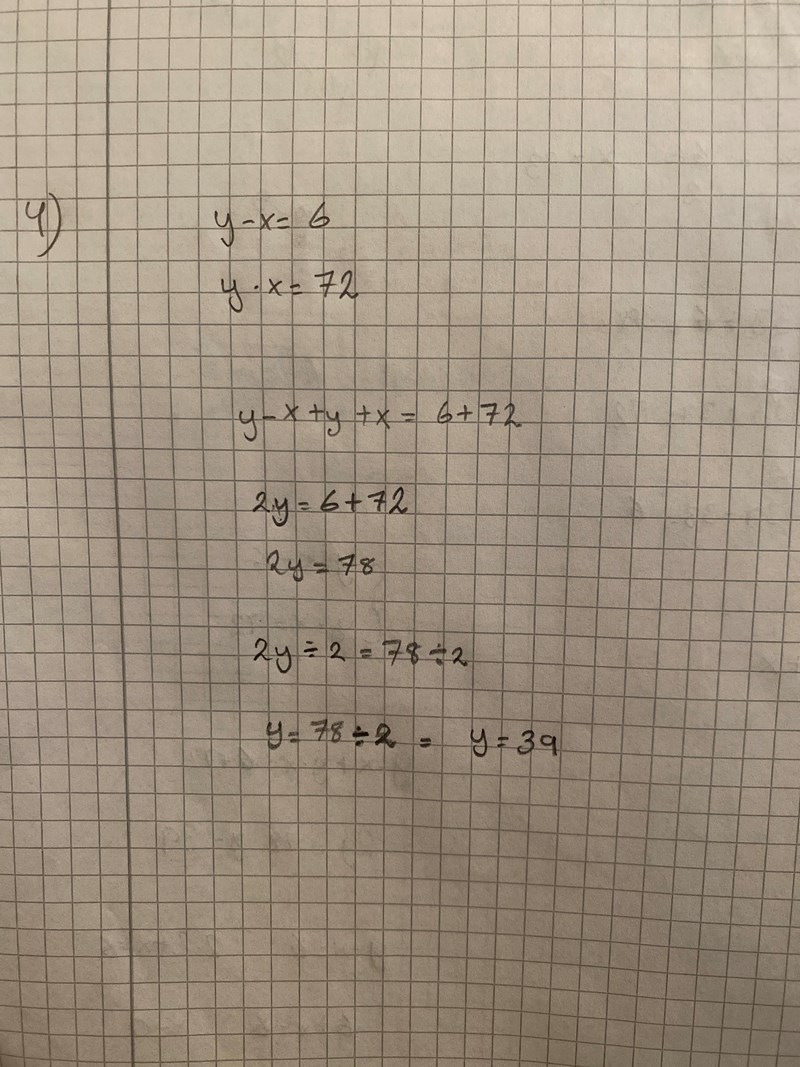 4)
y-x= 6
y·x= 72
y-x+y+x= 6+72
2y=6+72
2y=78
2y÷2=78÷2
y=78÷2 = y=39